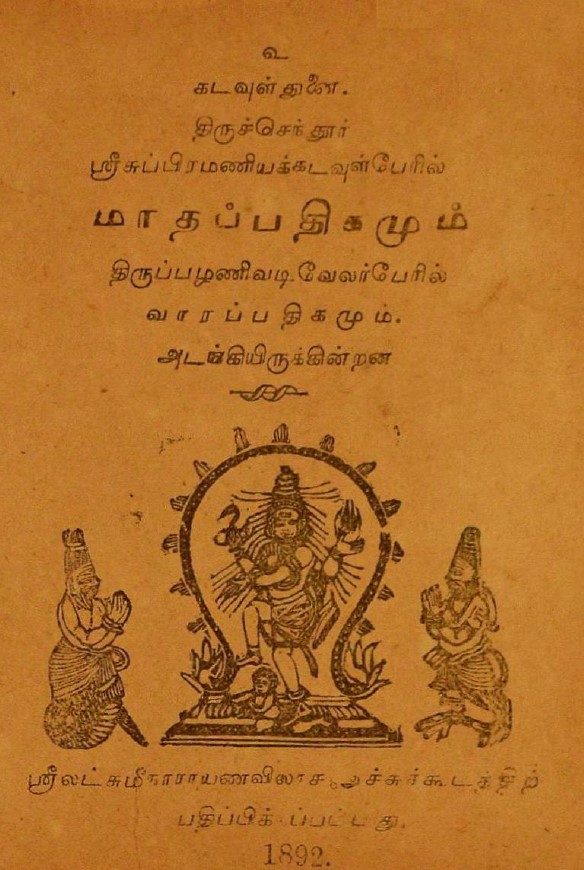 ௳
கடவுள் துணை.
திருச்செந்தூர்
ஸ்ரீசுப்பிரமணியக்கடவுள்பேரில்
மாதப்பதிகமும்
திருப்பழணிவடிவேலர்பேரில்
வாரப்பதிகமும்.
அடங்கியிருக்கின்றன
ஸ்ரீலட்சுமீநாராயணவிலாச அச்சுக்கூடத்திற்
பதிப்பிக்கப்பட்டது.
1892.